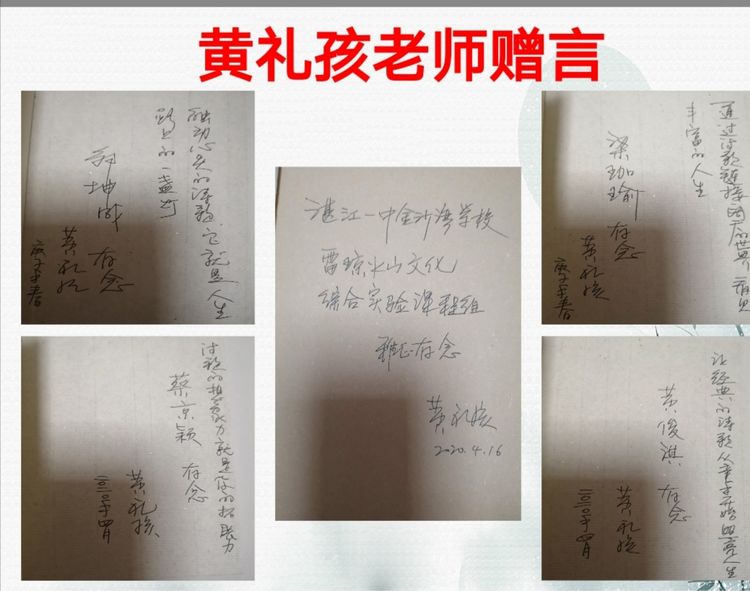 黄礼孩老师赠言
触动心灵的诗歌它就是人生
路上的一盏灯
坤成 存念
黄礼孩
庚子年春
湛江一中金沙湾学校
雷琼火山文化
综合实验课程组
雅正存念
黄礼孩
2020.4.16
通过诗歌链接的世界 看见
丰富的人生
梁珈瑜 存念
黄礼孩
庚子年春
诗歌的想象力就是你的力
蔡京颖 存念
黄礼孩
二〇二〇年四月
让经典的诗歌从童年开始照亮人生
黄俊淇 存念
黄礼孩
二〇二〇年四月